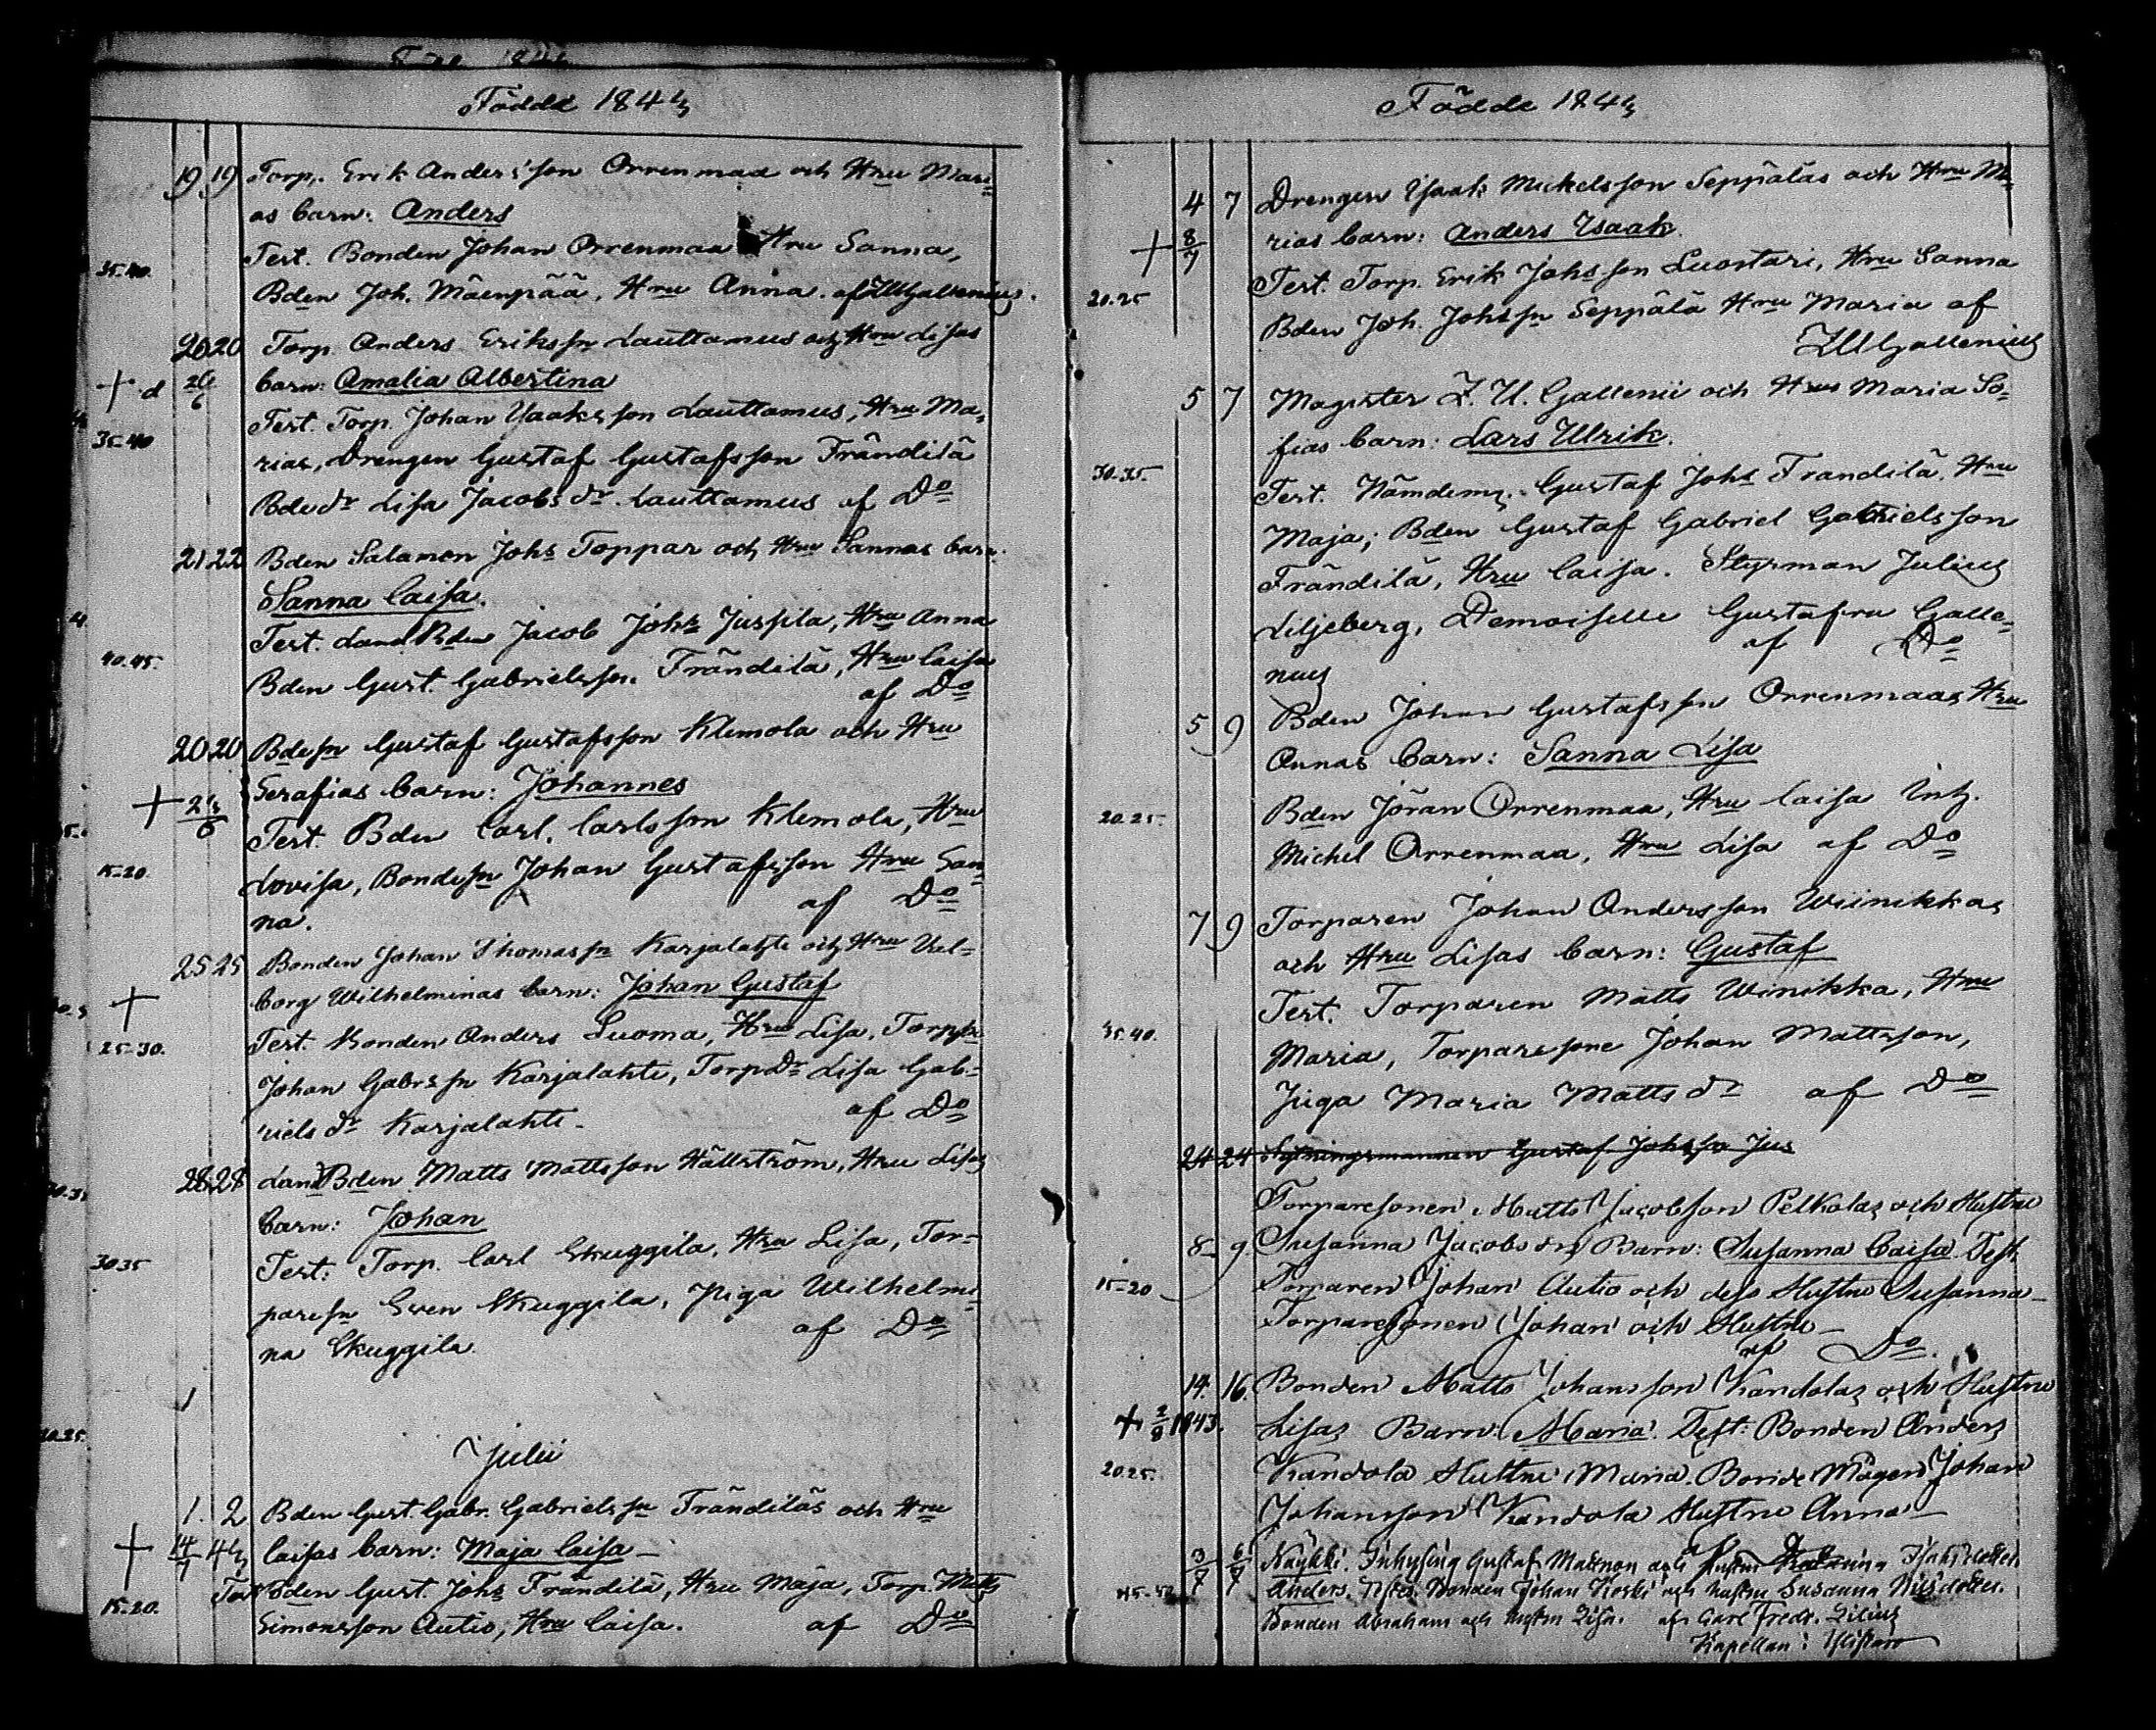 Födde 184
19 19 Torp. Erik Anders'son Orrenmaa och Hru Mari=
as barn: Anders
Test. Bonden Johan Orrenmaa Hru Sanna,
35-40.
Bden Joh. Mäenpää, Hru Anna. af LUGallenius.
20 20 Torp. Anders Erikssn Lauttamus och Hru Lisas
+ d 26/6 barn: Amalia Albertina
Test. Torp. Johan Ysaksson Lauttamus, Hru Ma=
35-40
rias, Drengen Gustaf Gustafsson Frändilä
Bdedr Lisa Jacobs dr. Lauttamus af Do
21 22 Bden Salamon Johs Toppar och Hru Sannas barn.
Sanna Caisa.
Test. Land Bden Jacob Johs Jussila, Hru Anna
40.45.
Bden Gust. Gabrielssn. Frändilä, Hru Caisa
af Do
20 20 Bdesn Gustaf Gustafsson Klemola och Hru
Serafias barn: Johannes
+
Test. Bden Carl. Carlsson Klemola, Hru
15-20.
Lovisa, Bondesn Johan Gustafsson Hru San=
na. af Do
25 25 Bonden Johan Thomassn Karjalahti och Hru Val=
borg Wilhelminas barn: Johan Gustaf
+
Test. Bonden Anders Luoma, Hru Lisa, Torpsn
25-30.
Johan Gabrssn Karjalahti, TorpDr Lisa Gab=
riels dr Karjalahti. af Do
28 28 Land Bden Matts Mattsson Hällström, Hru Lisas
barn: Johan
Test: Torp. Carl Skuggila, Hru Lisa, Tor=
30 35
paresn Sven Skuggila, Piga Wilhelmi=
na Skuggila. af Do
1
Julii
1. 2 Bden Gust. Gabr. Gabrielssn Frändiläs och Hru
+ 14/7 44 Caisas barn: Maja Caisa
Test Bden Gust. Johs Frändilä, Hru Maja, Torp. Matts
15-20.
Simonsson Autio, Hru Caisa. af Do
Födde 184
4 7 Drengen Ysaak Mickelsson Seppäläs och Hru Ma=
+ 8/7 rias barn: Anders Ysaak.
Test. Torp. Erik Johsson Luostari, Hru Sanna
20.25
Bden Joh. Johssn Seppälä Hru Maria af
LUGallenius
5 7 Magister L. U. Gallenii och Hrus Maria So=
fias barn: Lars Ulrik.
30-35.
Test. Nämdem. Gustaf Johs Frändilä. Hru
Maja; Bden Gustaf Gabriel Gabrielsson
Frändilä, Hru Caisa. Styrman Julius
Liljeberg, Demoiselle Gustafva Galle=
nius af Do
5 9 Bden Johan Gustafssn Orrenmaas Hru
Annas barn: Sanna Lisa
20.25.
Bden Jöran Orrenmaa, Hru Caisa Inh.
Michel Orrenmaa, Hru Lisa af Do
7 9 Torparen Johan Andersson Wiinikkas
och Hru Lisas barn: Gustaf
Test. Torparen Matts Winikka, Hru
35.40.
Maria, Torparesone Johan Mattsson,
Piga Maria Matts dr af Do
24 24 Sytningsmannen Gustaf Johssn Jus
Torparesonen Matts Jacobson Pelkolas och Hustru
8 9 Susanna Jacobs drs Barn: Susanna Caisa. Test.
15-20
Torparen Johan Autio och dess Hustru Susanna
Torparesonen Johan och Hustru
af Do.
14. 16. Bonden Matts Johansson Kandolas och Hustru
+ 2/8 1843. Lisas Barn: Maria. Test: Bonden Anders
20.25.
Kandola Hustru Maria. Bonde Mågen Johan
Johansson Kandola Hustru Anna
3/7 6/7 Näykki. Inhysing Gustaf Mattson och Hustru
Anders. Test. Bonden Johan Koski och hustru Susanna
Bonden Abraham och hustru Lisa. af Carl Fredr. Lilius
Kapellan i Ylistaro